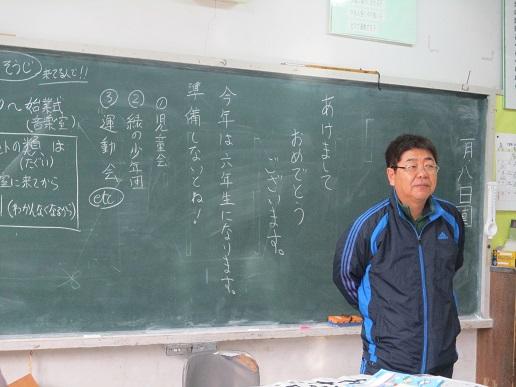 一月八日
あけまして
おめでとう
ございます。
今年は六年生になります。
準備しないとね！
①児童会
②緑の少年団
③運動会
etc
そうじ
来てるんで!!
へ始業式
(音楽室)
は
室に来てから
(わかんなくなるから)
adidas